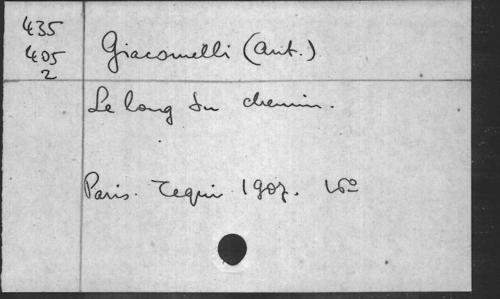 435
405
2
Giacomelli (Ant.)
Le long du chemin.
Paris. Tequi 1907. 16º